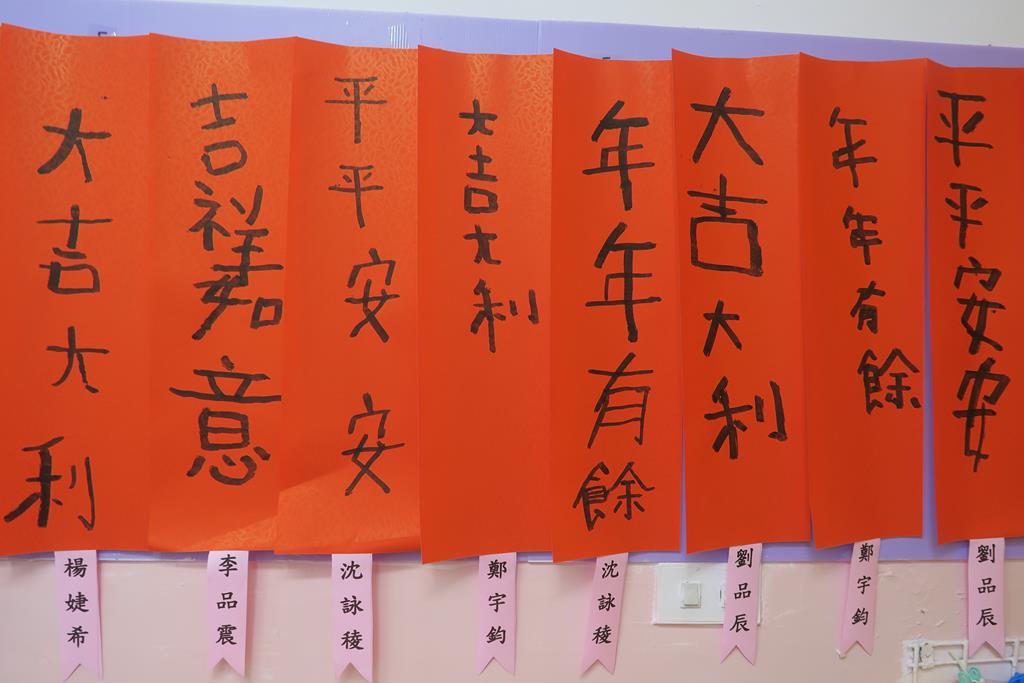 大吉大利
吉祥如意
平平安安
大吉大利
年年有餘
大吉大利
年年有餘
平平安安
楊婕希
李品震
沈詠稜
鄭宇鈞
沈詠稜
劉品辰
鄭宇鈞
劉品辰